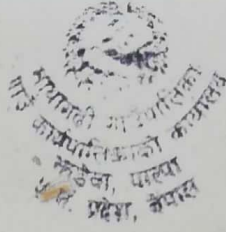 माथागढी गाउँपालिका
गाउँ कार्यपालिकाको कार्यालय
पाल्पा
प्रदेश, नेपाल